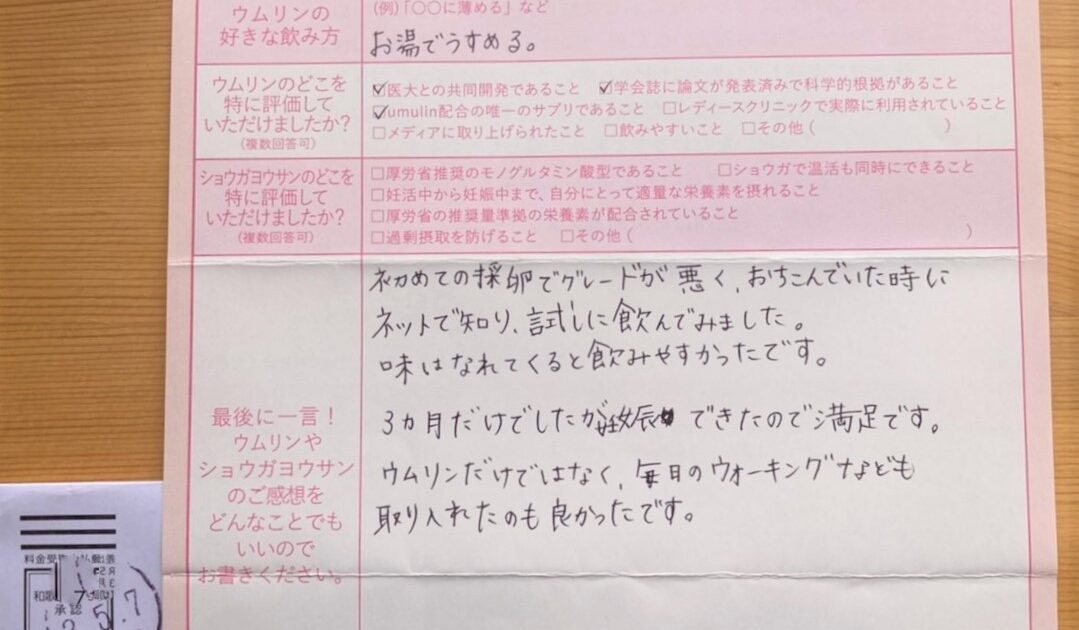 ウムリンの
好きな飲み方
(例)「〇〇に薄める」など
お湯でうすめる。
ウムリンのどこを
特に評価して
いただけましたか?
(複数回答可)
☑医大との共同開発であること ☑学会誌に論文が発表済みで科学的根拠があること
☑umulin配合の唯一のサプリであること □レディースクリニックで実際に利用されていること
□メディアに取り上げられたこと □飲みやすいこと □その他( )
ショウガヨウサンのどこを
特に評価して
いただけましたか?
(複数回答可)
□厚労省推奨のモノグルタミン酸型であること □ショウガで温活も同時にできること
□妊活中から妊娠中まで、自分にとって適量な栄養素を摂れること
□厚労省の推奨量準拠の栄養素が配合されていること
□過剰摂取を防げること □その他( )
最後に一言!
ウムリンや
ショウガヨウサン
のご感想を
どんなことでも
いいので
お書きください。
初めての採卵でグレードが悪く、おちこんでいた時に
ネットで知り、試しに飲んでみました。
味はなれてくると飲みやすかったです。
3ヵ月だけでしたが妊娠できたので満足です。
ウムリンだけではなく、毎日のウォーキングなども
取り入れたのも良かったです。
料金受
和歌
承認
5.7